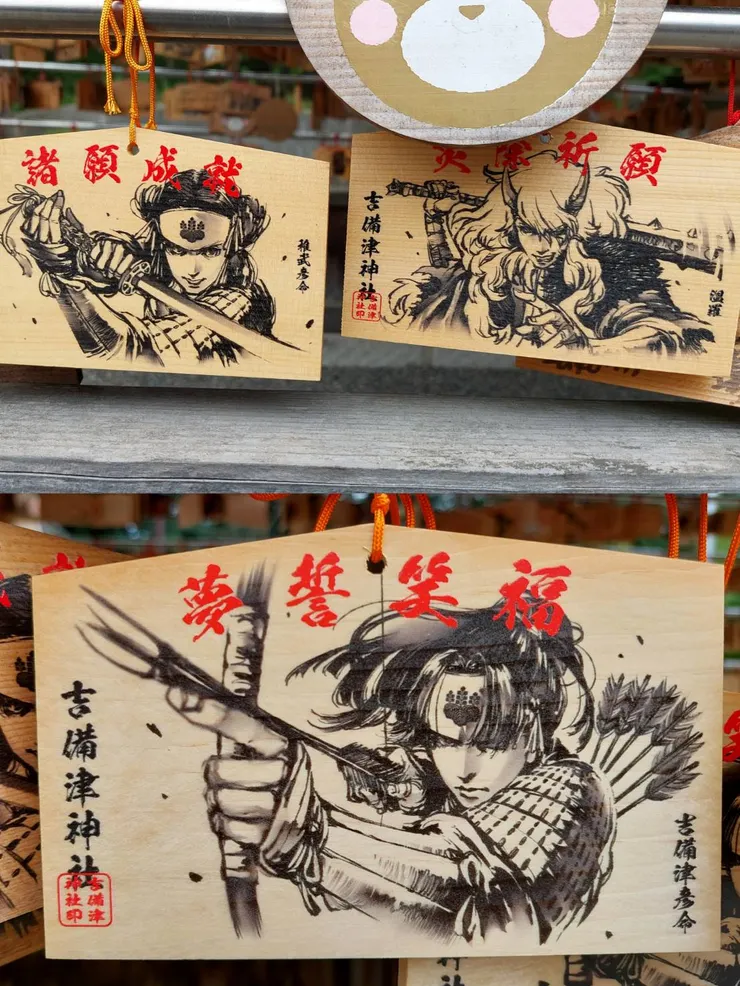 諸願成就
稚武彦命
災除祈願
吉備津神社
吉備津
神社印
温羅
夢誓笑福
吉備津神社
吉備津
神社印
吉備津彦命